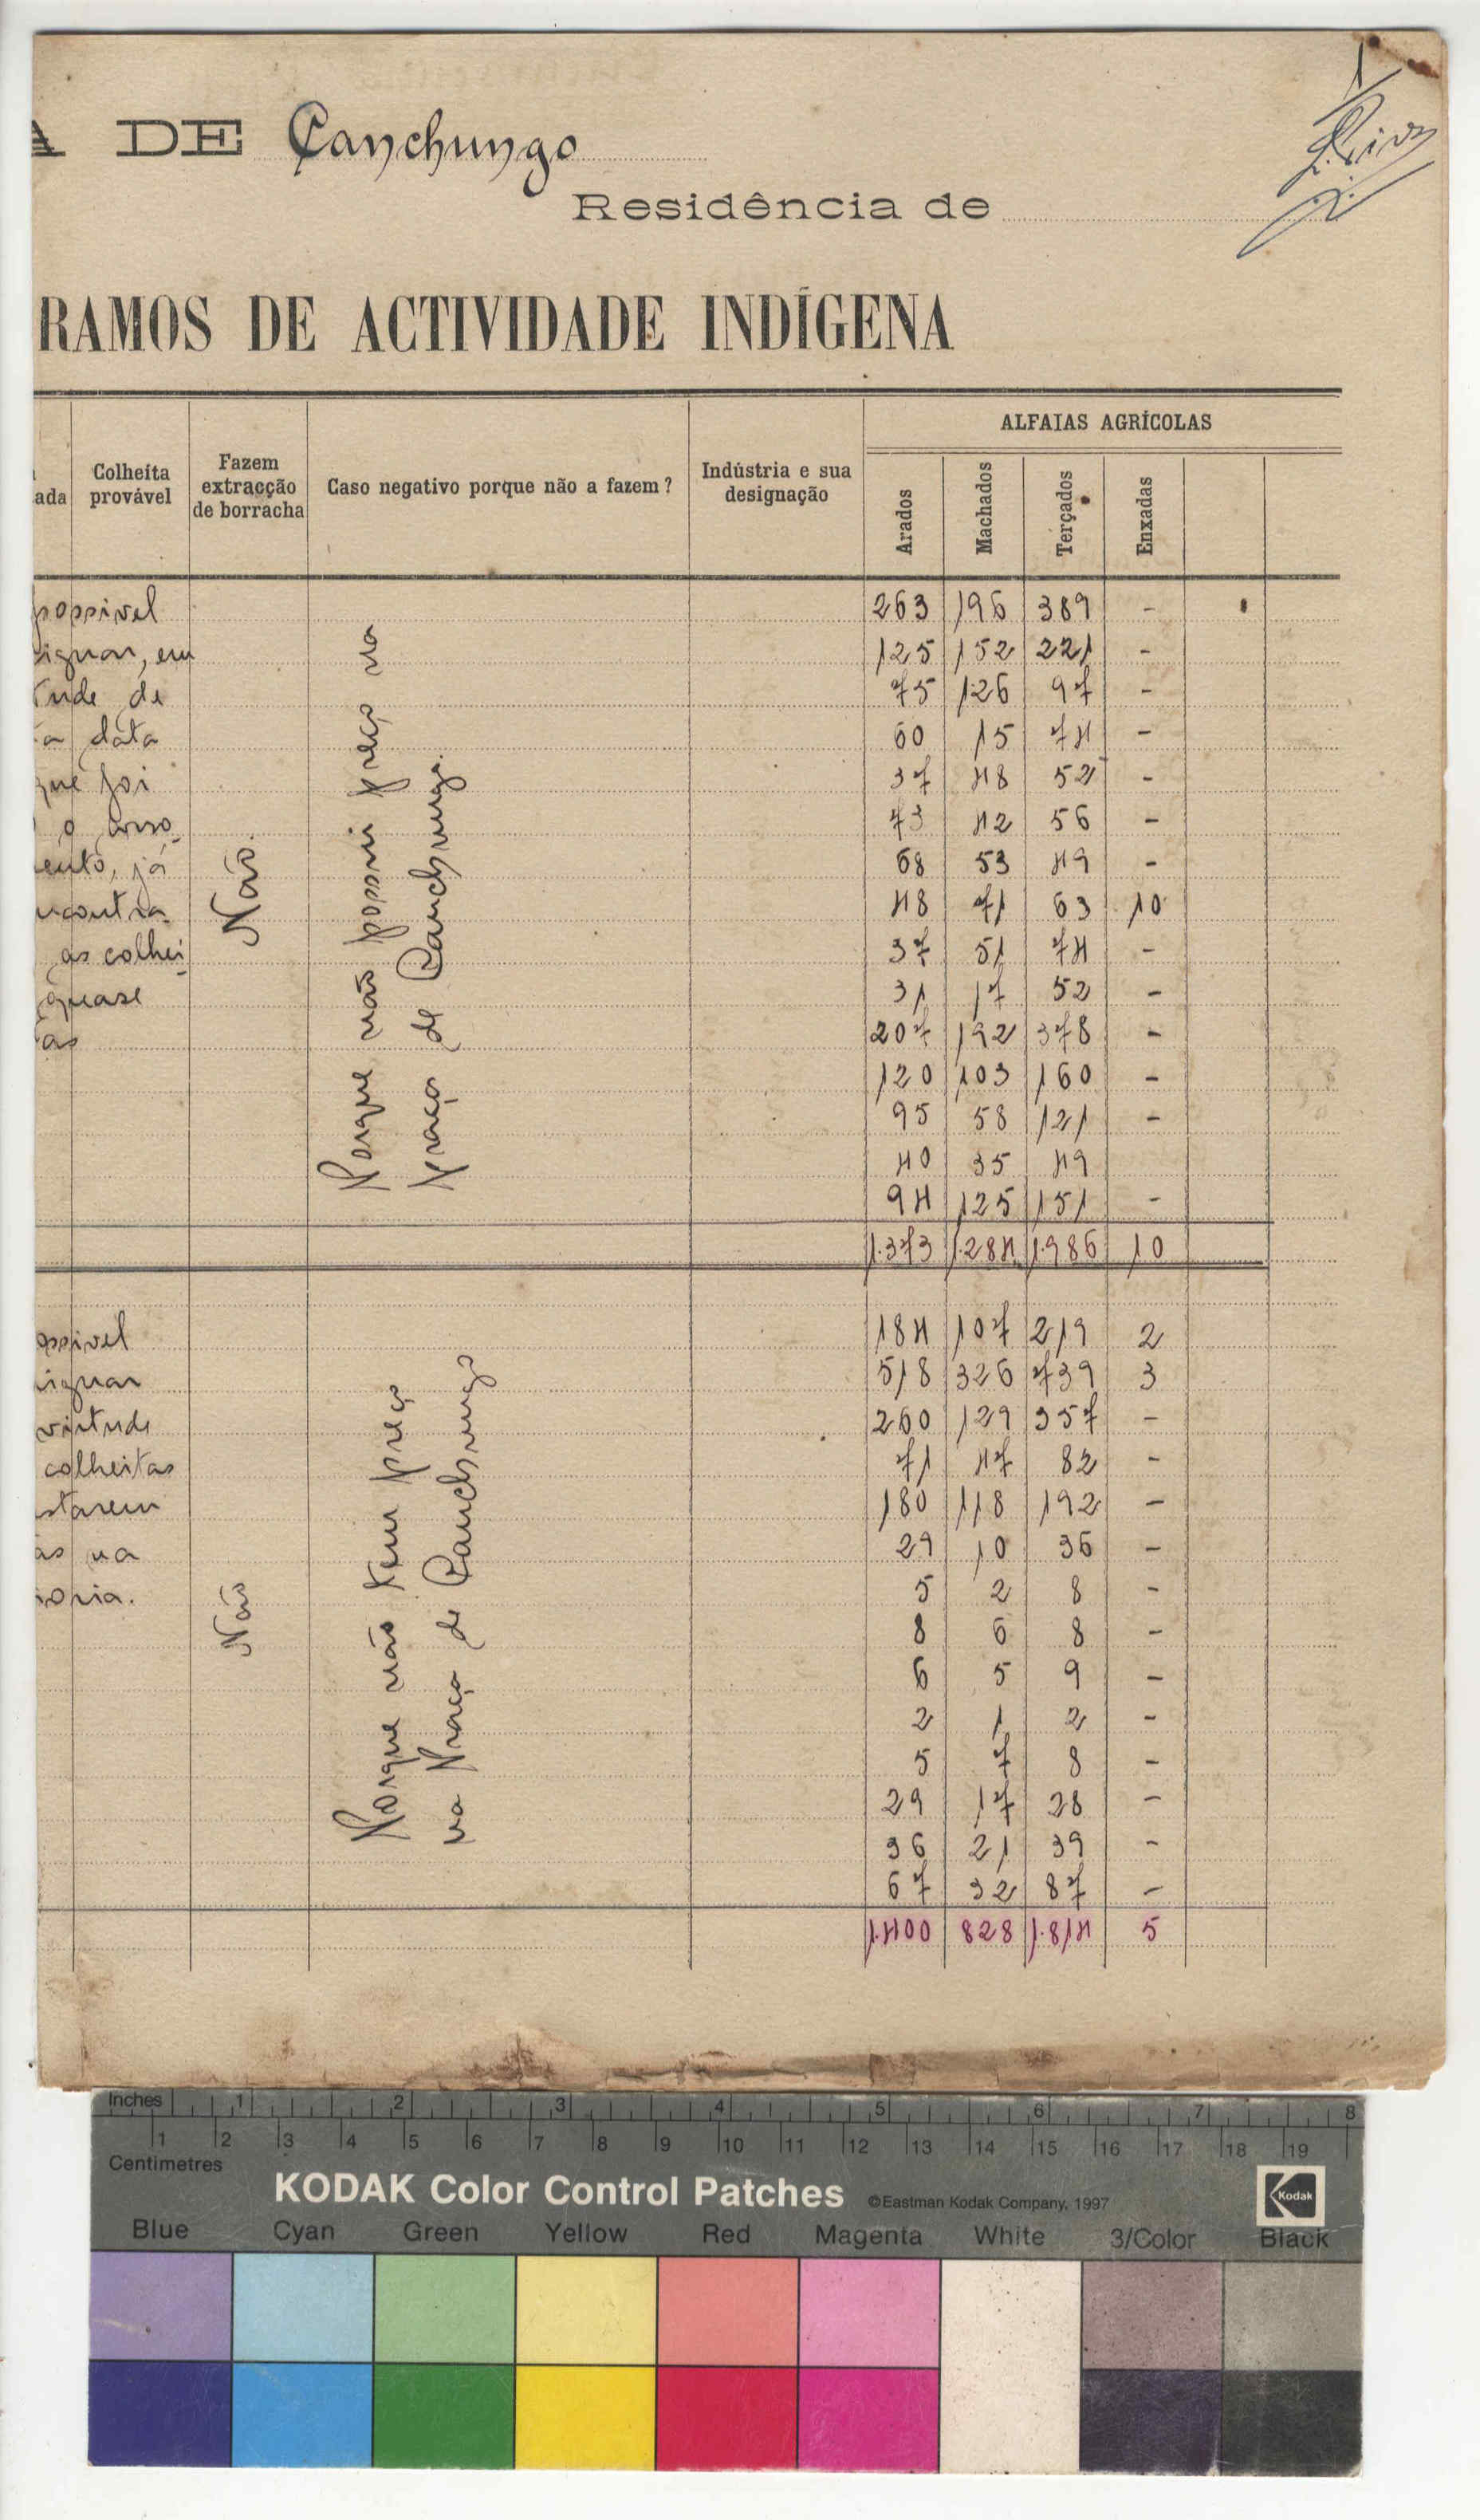 A DE Canchungo
Residência de
RAMOS DE ACTIVIDADE INDÍGENA
ada
Colheita provável
Fazem extracção de borracha
Caso negativo porque não a fazem?
Indústria e sua designação
ALFAIAS AGRÍCOLAS
Arados Machados Terçados Enxadas
possivel
iguar, em
tude de
a data
que foi
o arro
ento, já
ncontra
as colhei
quase
as
Não.
Porque não possui preço na
praça de Canchungo.
263 196 389 -
125 152 221 -
75 126 97 -
60 15 74 -
37 48 52 -
73 42 56 -
68 53 49 -
48 71 63 10
37 51 74 -
31 17 52 -
207 192 378 -
120 103 160 -
95 58 121 -
40 35 49
94 125 151 -
1.373 1.284 1.986 10
ossivel
iguar
virtude
colheitas
starem
as na
oria.
Não
Porque não tem preço
na Praça de Canchungo
184 107 219 2
518 326 739 3
260 129 357 -
71 47 82 -
180 118 192 -
29 10 36 -
5 2 8 -
8 6 8 -
6 5 9 -
2 1 2 -
5 7 8 -
29 17 28 -
36 21 39 -
67 32 87 -
1.400 828 1.814 5
Inches 1 2 3 4 5 6 7 8
1 2 3 4 5 6 7 8 9 10 11 12 13 14 15 16 17 18 19
Centimetres
KODAK Color Control Patches ©Eastman Kodak Company, 1997 Kodak
Blue Cyan Green Yellow Red Magenta White 3/Color Black